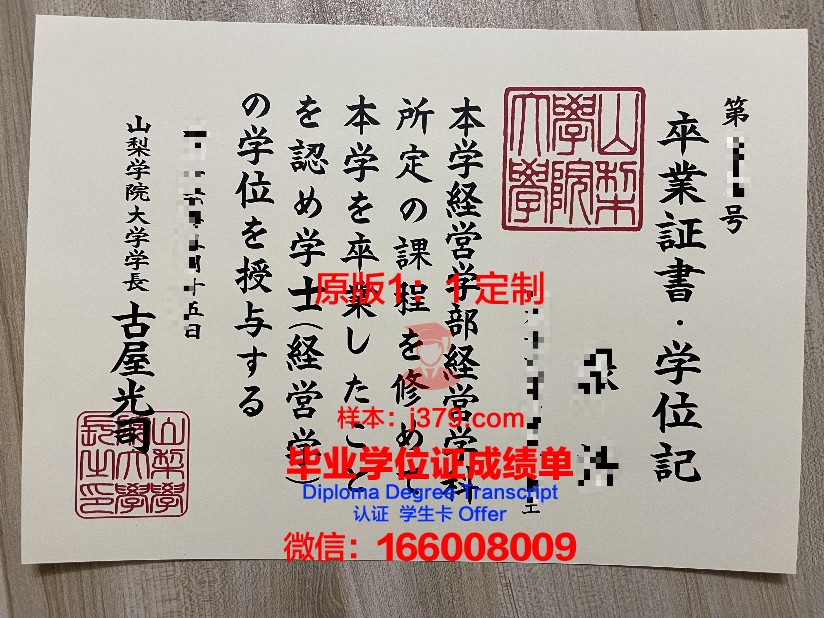 第
号
卒業証書・学位記
山梨
學院
大學
本学経営学部経営学科
所定の課程を修めて
本学を卒業したこと
を認め学士(経営学)
の学位を授与する
月十五日
山梨学院大学学長 古屋光司
山梨學
院大學
長之印
原版1：1定制
样本：j379.com
毕业学位证成绩单
Diploma Degree Transcript
认证 学生卡 Offer
微信：166008009